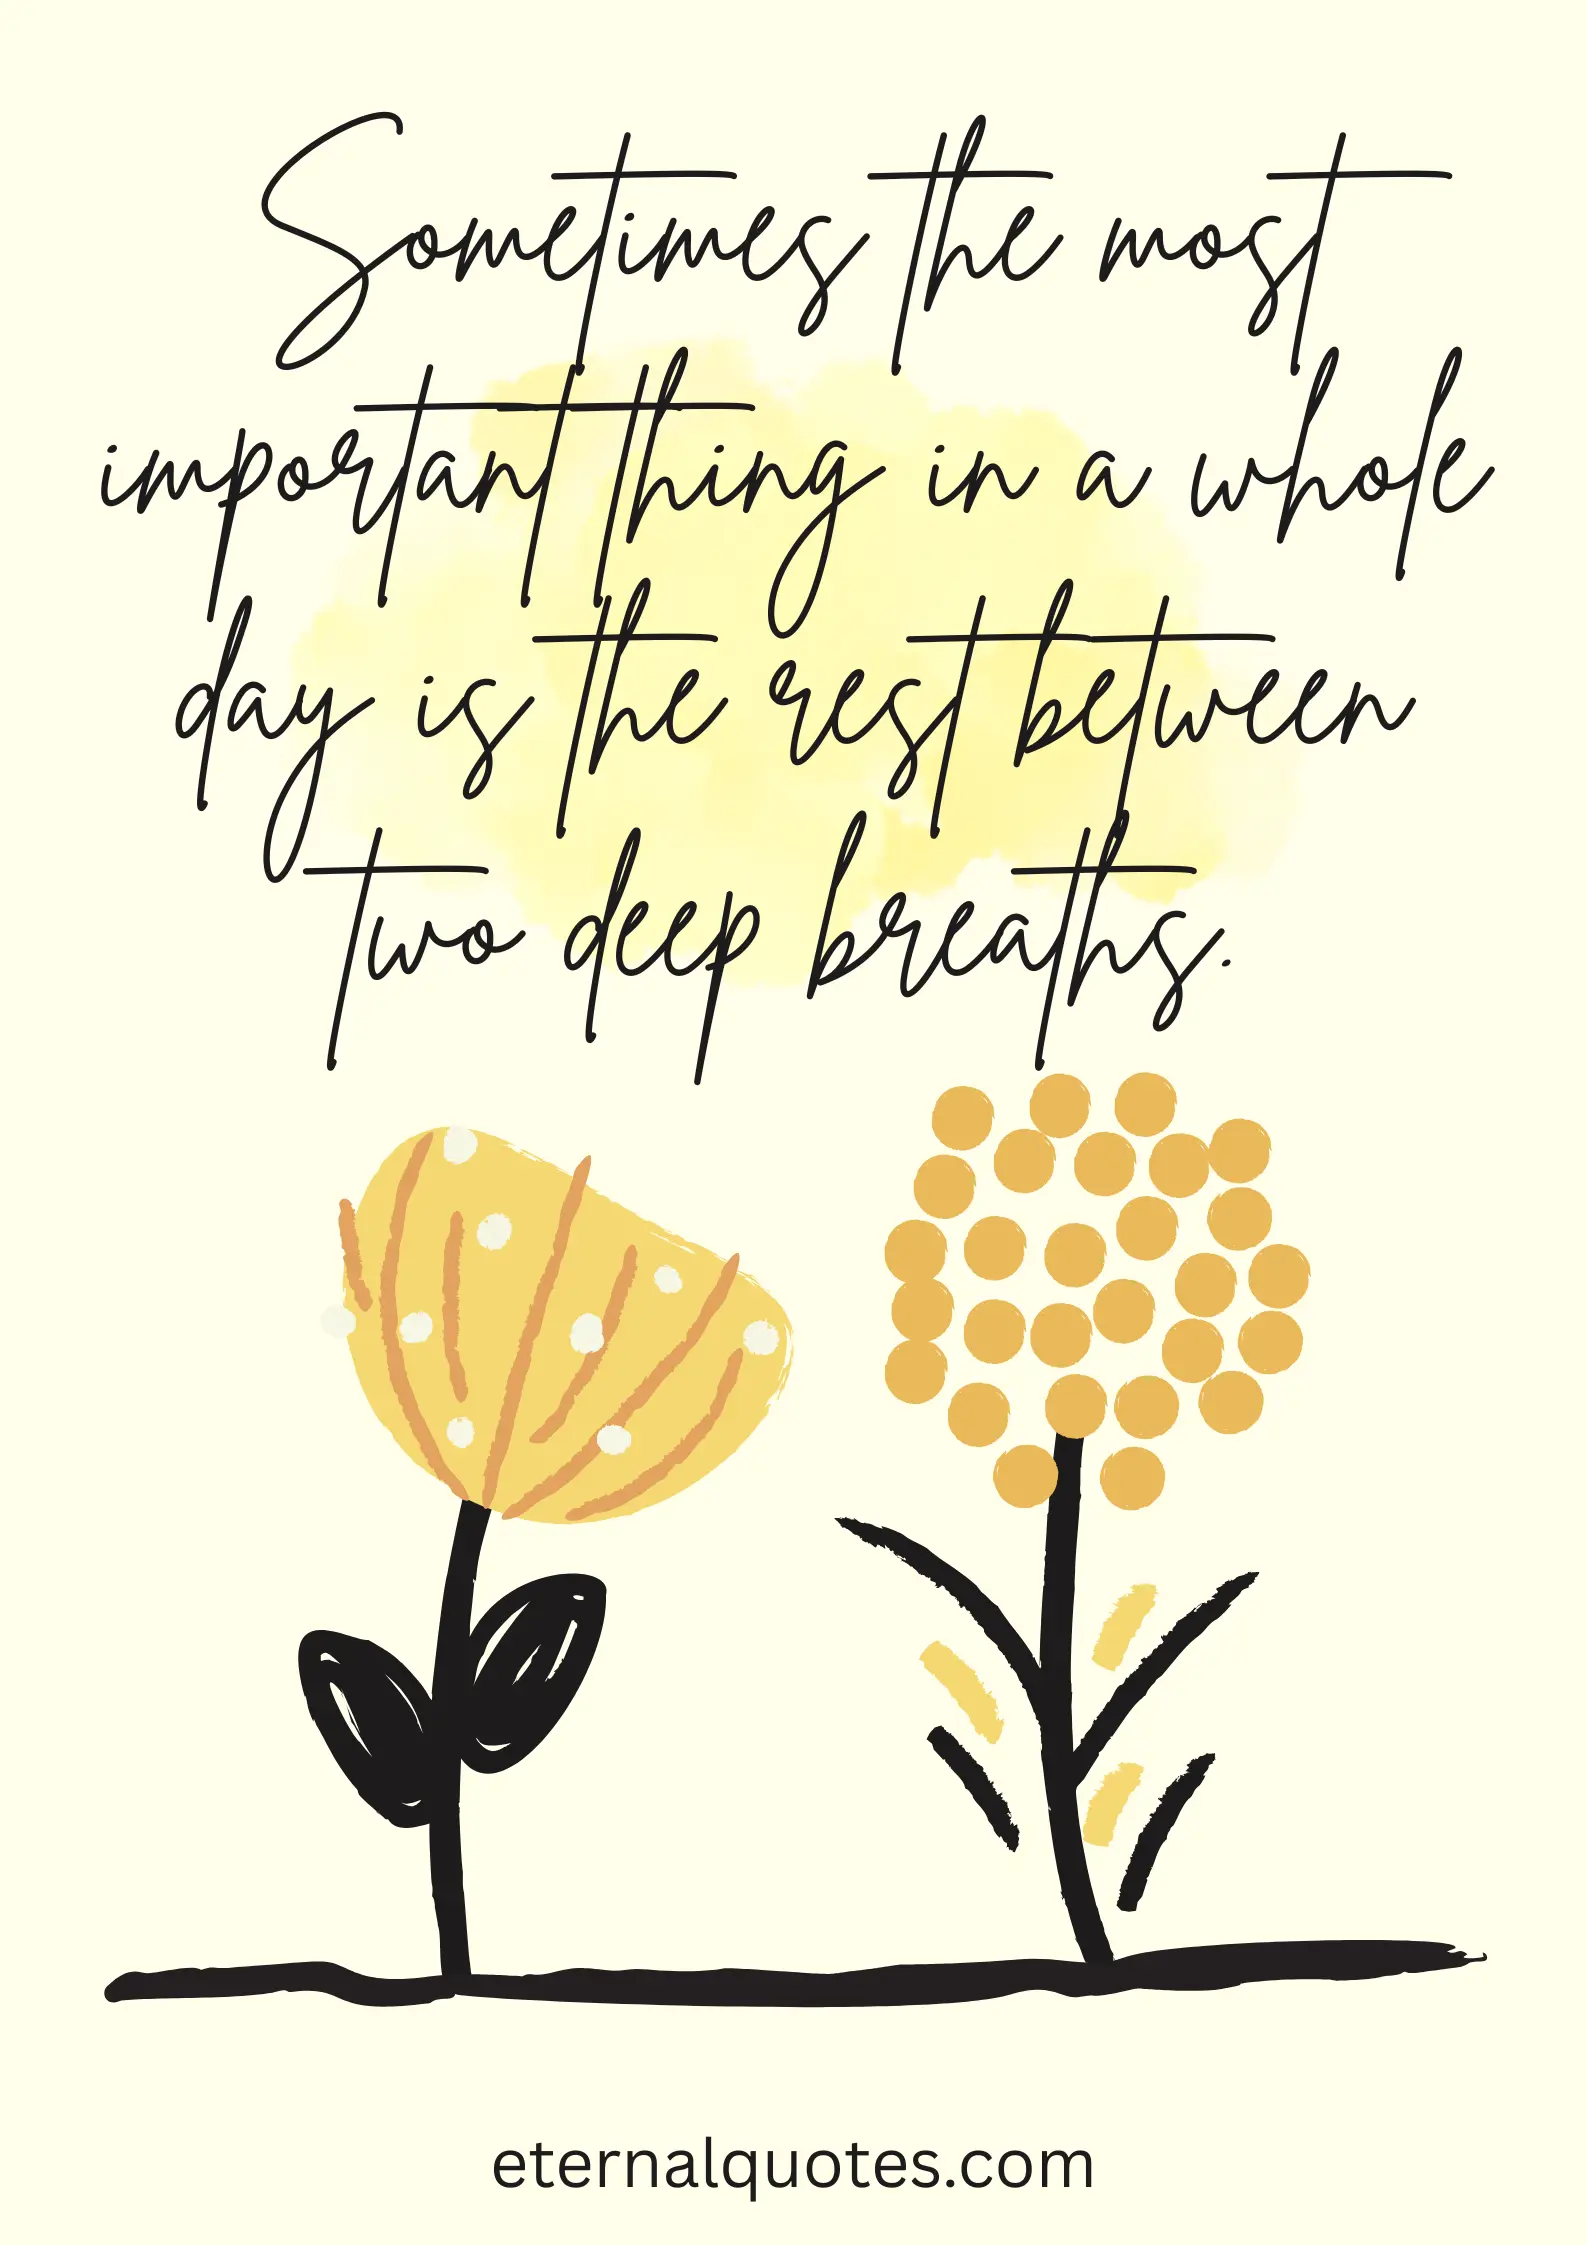 Sometimes the most
important thing in a whole
day is the rest between
two deep breaths.
eternalquotes.com